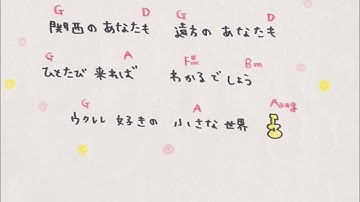 G D G D
関西の あなたも 遠方の あなたも
G A F#m Bm
ひとたび 来れば わかるでしょう
G A Aaug
ウクレレ 好きの 小さな世界